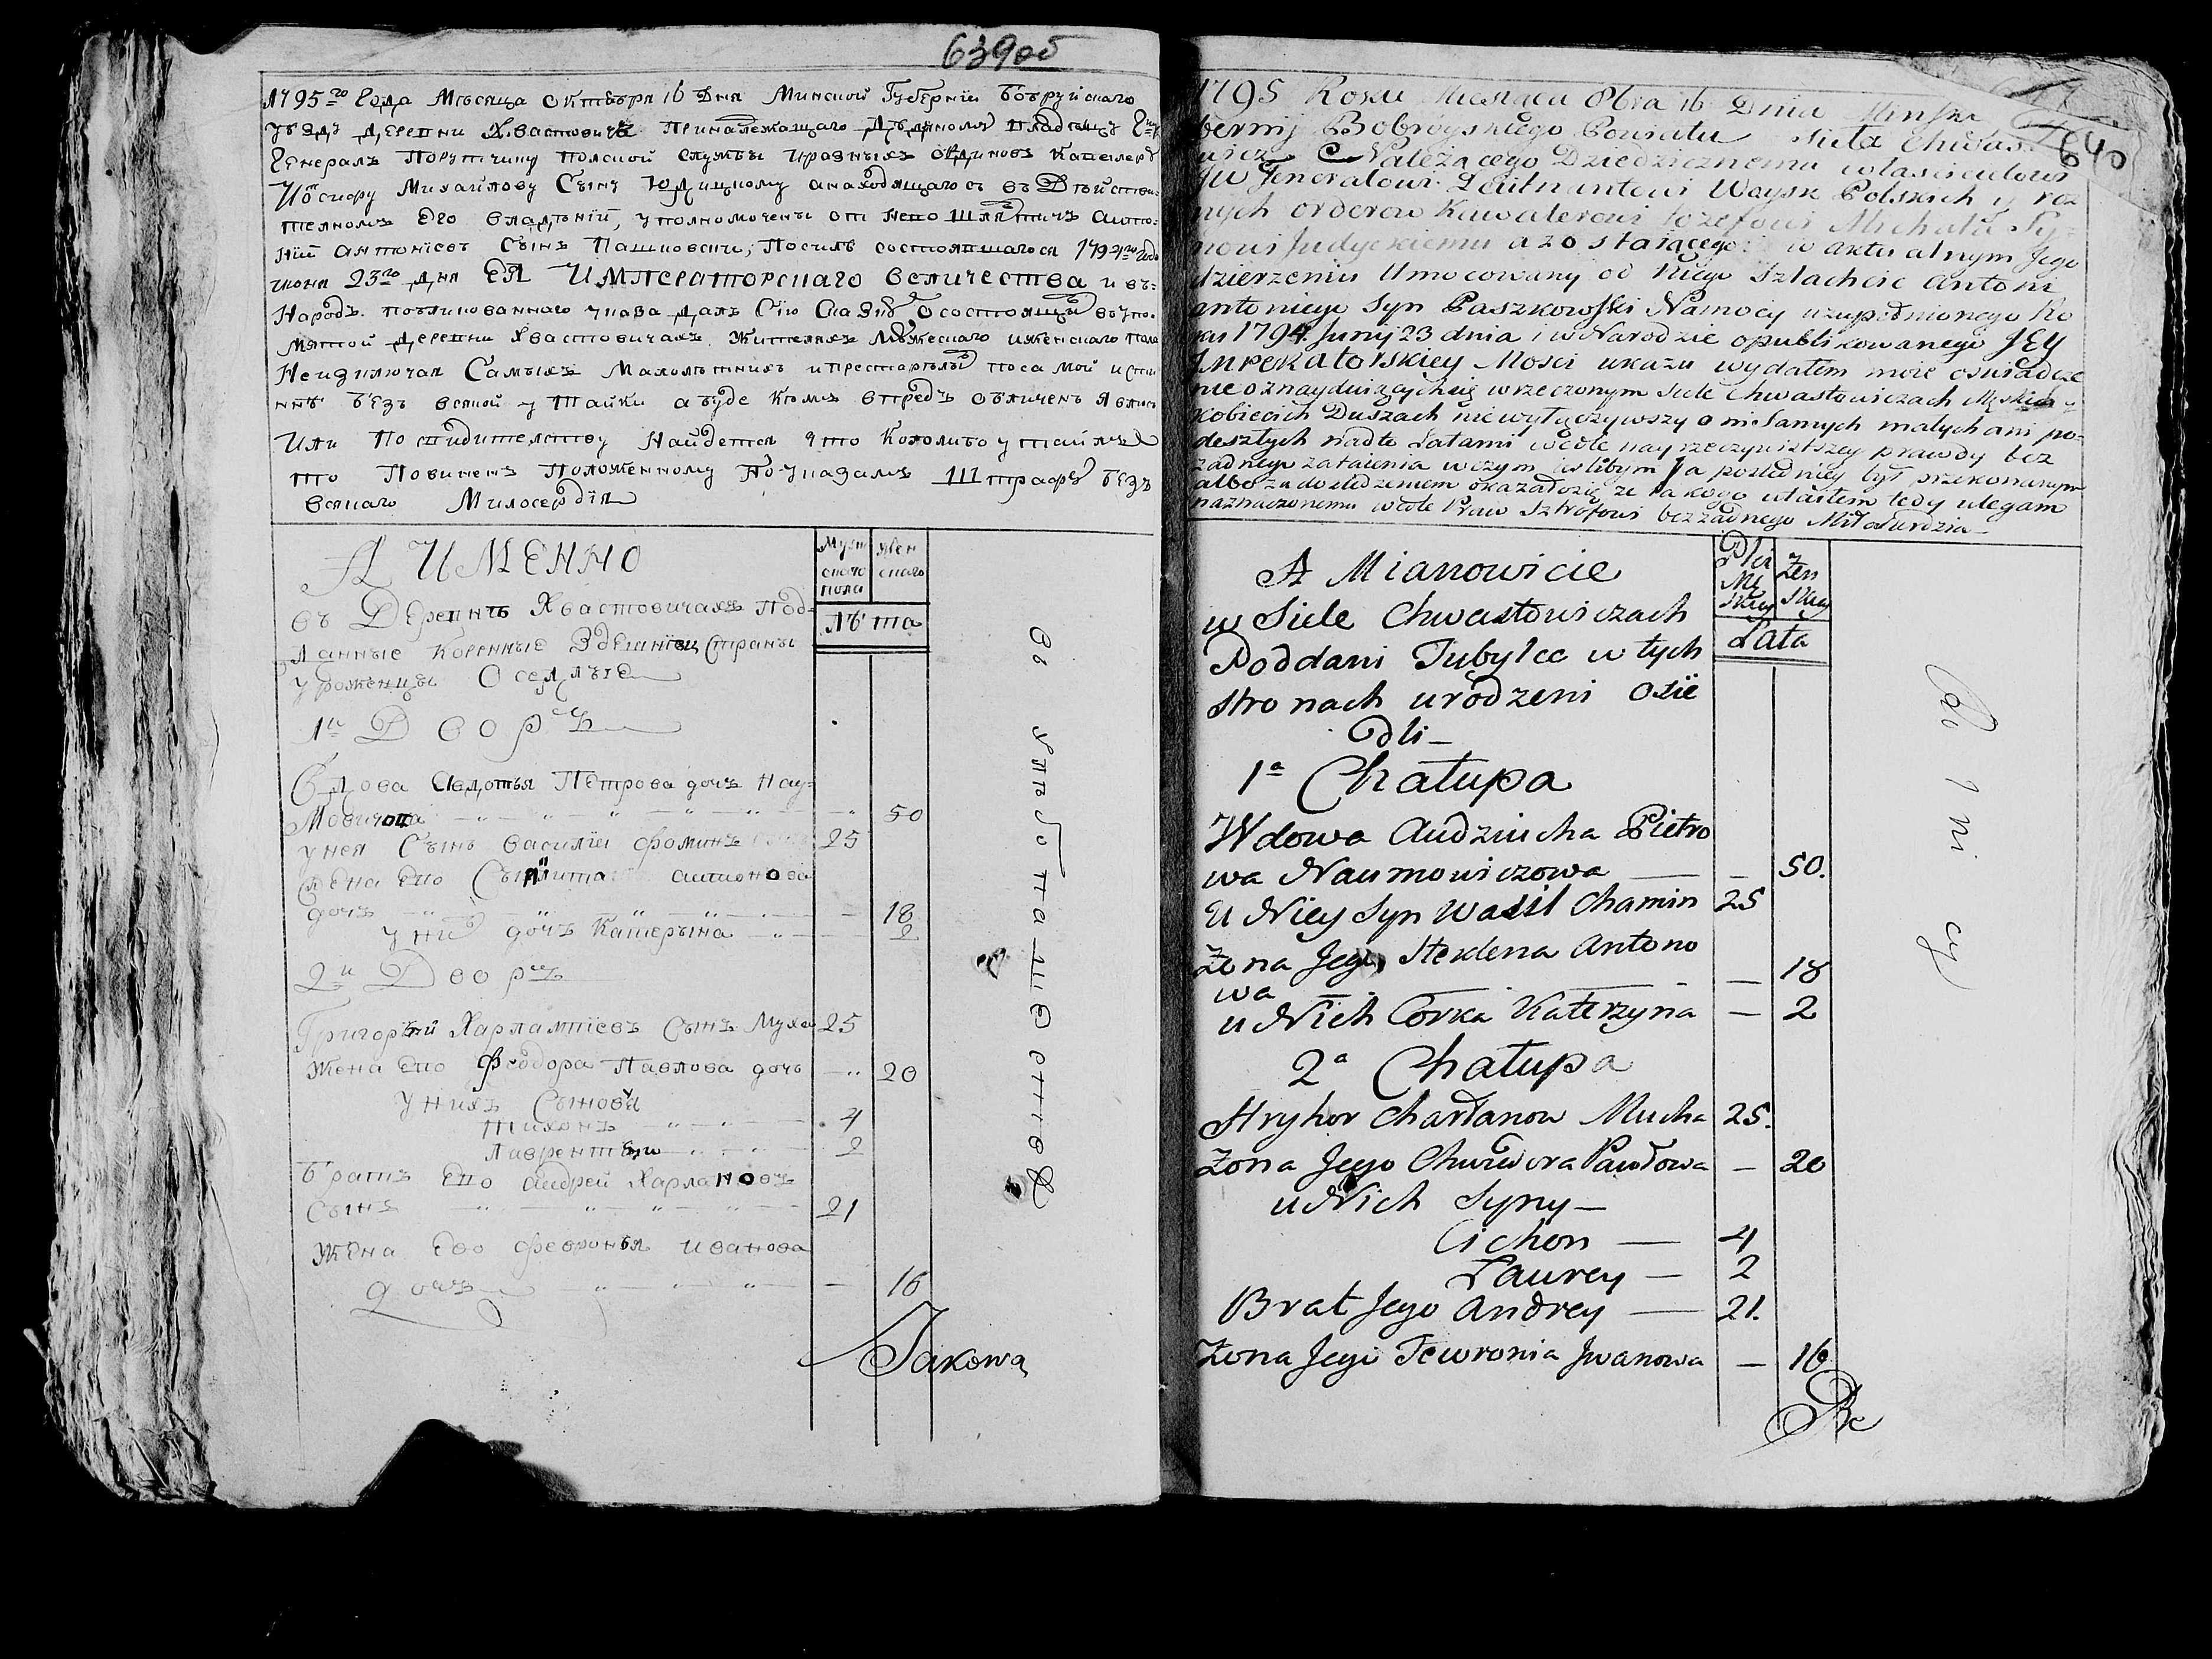 639об
1795го года Месяца октября 16 Дня Минской Губернии Бобруйского
уезду деревни Хвастовичъ принадлежащаго
Генералъ Порутчику полской службы и разныхъ ординовъ Кавалеру
Иосифу Михайлову Сыну Юдицкому а находящагось въ Действи-
телномъ его владении, уполномоченъ от него шляхтичъ анто-
ний антониевъ Сынъ Пашковский, по силе состоявшагося 1794го года
июня 23го дня ЕЯ ИМПЕРАТОРСКАГО величества и въ-
Народъ публикованнаго указа далъ Сию о состоящихъ въ упо-
мянутой деревни Хвастовичахъ Жителяхъ Мужескаго и женскаго пола
Неизключая Самыхъ Малолетнихъ и престарелыхъ по са мой исти
нне безъ всякой утайки а буде кемъ впредь обличенъ явлюсь
Или По Найдется что Коголибо утаилъ
то Повиненъ Положенному по указамъ Штрафу безъ
всякаго Милосердия
А ИМЕННО
Муж скаго пола
жен скаго
въ Деревне Хвастовичахъ Под-
лета
данные коренные Здешней Страны
уроженцы Оседлые
1й Дворъ
Вдова Авдотья Петрова дочь Нау-
мовичова — 50
у нея Сынъ Василий Фоминъ 25
Жена его антонова
дочь — 18
у них дочь Катерына — 2
2й Дворъ
Григорий Харлампиевъ Сынъ Муха 25
Жена его Феодора Павлова дочь — 20
у нихъ Сыновья
Тихонъ 4
Лаврентий 2
братъ его андрей Харлановъ
Сынъ 21
Жена его февронья иванова
дочь — 16
Jakowa
1795 Roku Miesiąca 8bra 16 Dnia Minsk
640
bernij Bobroyskiego Powiatu Sieła Chwas
wicz Należącego Dziedzicznemu własciciełowi
Jenerałowi Leutnantowi Woysk Polskich y roz
nych orderow Kawalerowi Jozefowi Michała Sy-
nowi Judyckiemu a zostaiącego w aktualnym Jego
dzierzeniu Umocowany od niego Szlachcic Antoni
antoniego Syn Paszkowski Namocy uzupełnionego Ro
ku 1794 Junij 23 dnia i w Narodzie opublikowanego JEY
INPERATORSKIEY Mosci ukazu wydałem moie oswiadcze
nie o znayduiących się wrzeczonym Siele Chwastowiczach Męskich y
Kobiecich Duszach niewyłączywszy o ni Samych małych ani po-
deszłych nadto Latami wedle nayrzeczywistszey prawdy bez
żadnego zataienia wczym iesłibym Ja posledniey był przekonanym
albo za dosledzeniem okazałosię że Ja kogo utaiłem tedy ulegam
naznaczonemu wedle Praw Sztrofowi bez żadnego Miłosierdzia
A Mianowicie
Płci Mę Skiey
Żen Skiey
w Siele Chwastowiczach
Lata
Poddani Tubylce w tych
stronach urodzeni osie
dli—
1a Chałupa
Wdowa Audziucha Pietro
wa Naumowiczowa — — 50.
U Niey Syn Wasil Chamin 25
Żona Jego Steklena Antono
wa — — 18
u Nich Corka Katerzyna — 2
2a Chałupa
Hryhor Charłanow Mucha 25.
Żona Jego Chwiedora Pawłowa — 20
u Nich Syny —
Cichon — 4
Laurey — 2
Brat Jego Andrey — 21.
Żona Jego Fewronia Jwanowa — 16